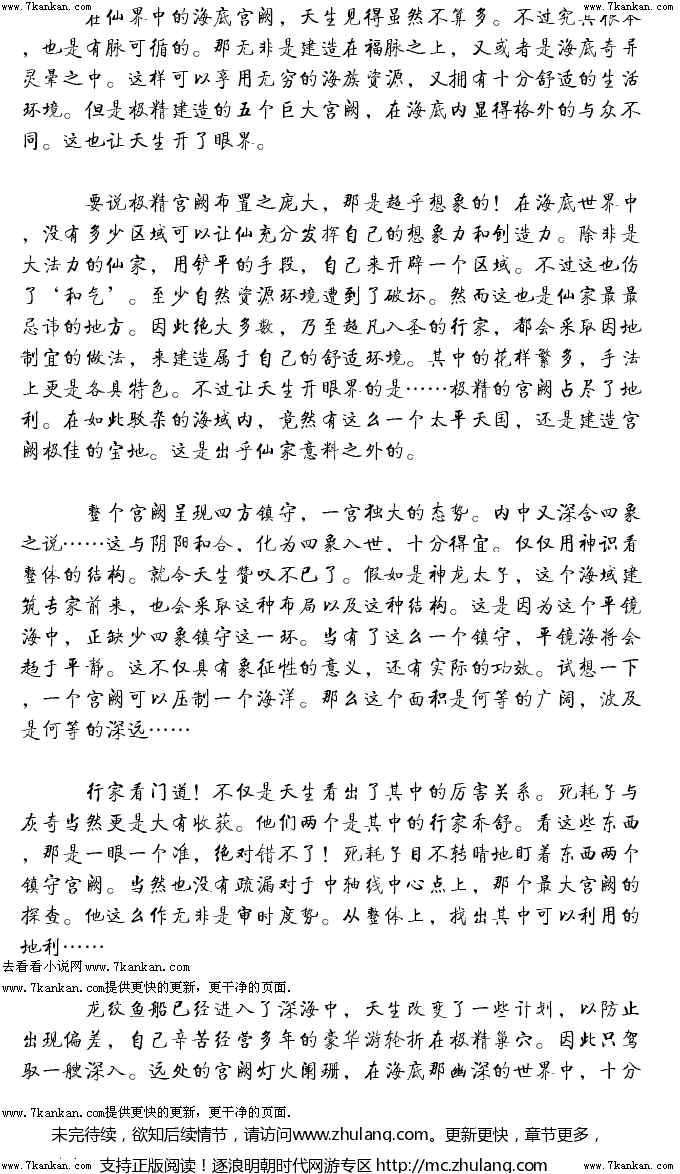 www.7kankan.com www.7kankan.com
在仙界中的海底宫阙，天生见得虽然不算多。不过究其根本
，也是有脉可循的。那无非是建造在福脉之上，又或者是海底奇异
灵晕之中。这样可以享用无穷的海族资源，又拥有十分舒适的生活
环境。但是极精建造的五个巨大宫阙，在海底内显得格外的与众不
同。这也让天生开了眼界。
要说极精宫阙布置之庞大，那是超乎想象的！在海底世界中
，没有多少区域可以让仙充分发挥自己的想象力和创造力。除非是
大法力的仙家，用铲平的手段，自己来开辟一个区域。不过这也伤
了‘和气’。至少自然资源环境遭到了破坏。然而这也是仙家最最
忌讳的地方。因此绝大多数，乃至超凡入圣的行家，都会采取因地
制宜的做法，来建造属于自己的舒适环境。其中的花样繁多，手法
上更是各具特色。不过让天生开眼界的是……极精的宫阙占尽了地
利。在如此驳杂的海域内，竟然有这么一个太平天国，还是建造宫
阙极佳的宝地。这是出乎仙家意料之外的。
整个宫阙呈现四方镇守，一宫独大的态势。内中又深含四象
之说……这与阴阳和合，化为四象入世，十分得宜。仅仅用神识看
整体的结构。就令天生赞叹不已了。假如是神龙太子，这个海域建
筑专家前来，也会采取这种布局以及这种结构。这是因为这个平镜
海中，正缺少四象镇守这一环。当有了这么一个镇守，平镜海将会
趋于平静。这不仅具有象征性的意义，还有实际的功效。试想一下
，一个宫阙可以压制一个海洋。那么这个面积是何等的广阔，波及
是何等的深远……
行家看门道！不仅是天生看出了其中的厉害关系。死耗子与
灰奇当然更是大有收获。他们两个是其中的行家乔舒。看这些东西
，那是一眼一个准，绝对错不了！死耗子目不转睛地盯着东西两个
镇守宫阙。当然也没有疏漏对于中轴线中心点上，那个最大宫阙的
探查。他这么作无非是审时度势。从整体上，找出其中可以利用的
地利……
去看看小说网www.7kankan.com
www.7kankan.com提供更快的更新，更干净的页面.
龙纹鱼船已经进入了深海中，天生改变了一些计划，以防止
出现偏差，自己辛苦经营多年的豪华游轮折在极精巢穴。因此只驾
驭一艘深入。远处的宫阙灯火阑珊，在海底那幽深的世界中，十分
www.7kankan.com提供更快的更新，更干净的页面.
未完待续，欲知后续情节，请访问www.zhulang.com。更新更快，章节更多，
支持正版阅读！逐浪明朝时代网游专区 http://mc.zhulang.com